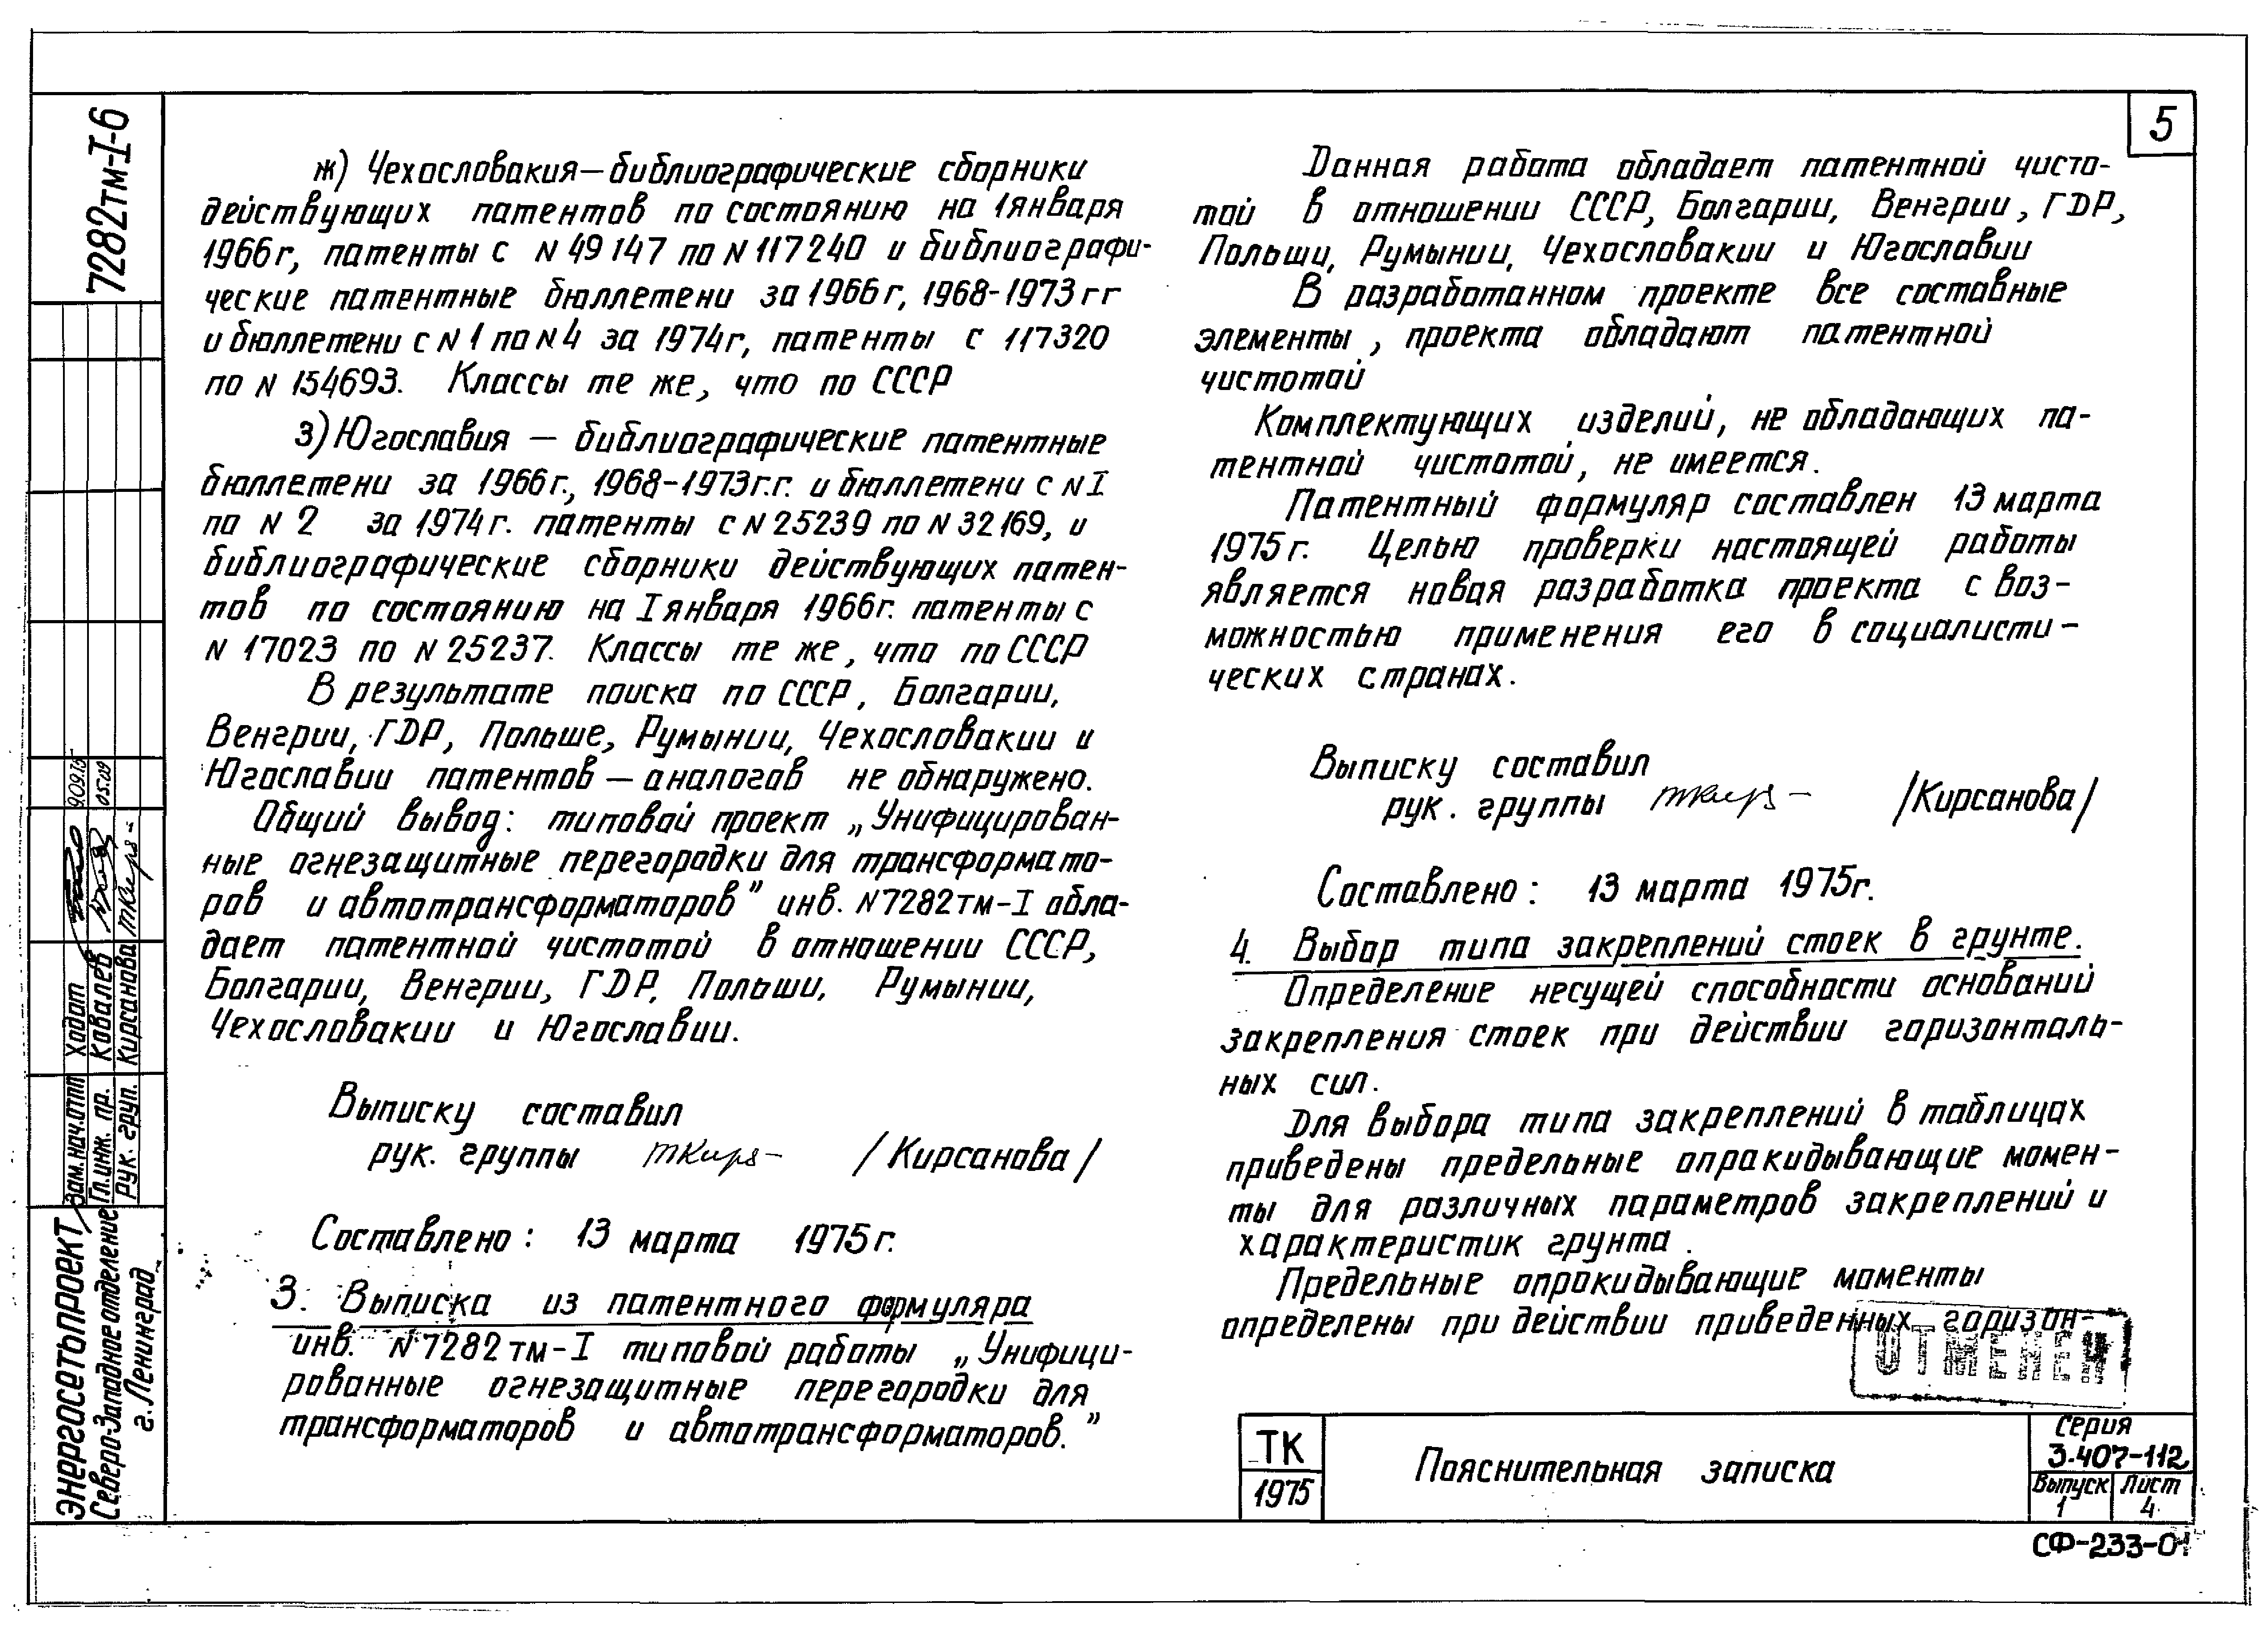 5
7282тм-I-6
ж) Чехословакия—библиографические сборники
действующих патентов по состоянию на 1января
1966г, патенты с N 49147 по N 117240 и библиографи-
ческие патентные бюллетени за 1966г, 1968-1973гг
и бюллетени с N 1 по N 4 за 1974г, патенты с 117320
по N 154693. Классы те же, что по СССР
з) Югославия — библиографические патентные
бюллетени за 1966г., 1968-1973г.г. и бюллетени с N I
по N 2 за 1974г. патенты с N 25239 по N 32169, и
библиографические сборники действующих патен-
тов по состоянию на I января 1966г. патенты с
N 17023 по N 25237. Классы те же, что по СССР
В результате поиска по СССР, Болгарии,
Венгрии, ГДР, Польше, Румынии, Чехословакии и
Югославии патентов — аналогов не обнаружено.
Общий вывод: типовой проект „Унифицирован-
ные огнезащитные перегородки для трансформато-
ров и автотрансформаторов" инв. N7282тм-I обла-
дает патентной чистотой в отношении СССР,
Болгарии, Венгрии, ГДР, Польши, Румынии,
Чехословакии и Югославии.
Выписку составил
рук. группы /Кирсанова/
Составлено: 13 марта 1975г.
3. Выписка из патентного формуляра
инв. N7282тм-I типовой работы „Унифици-
рованные огнезащитные перегородки для
трансформаторов и автотрансформаторов."
Данная работа обладает патентной чисто-
той в отношении СССР, Болгарии, Венгрии, ГДР,
Польши, Румынии, Чехословакии и Югославии
В разработанном проекте все составные
элементы, проекта обладают патентной
чистотой
Комплектующих изделий, не обладающих па-
тентной чистотой, не имеется.
Патентный формуляр составлен 13 марта
1975г. Целью проверки настоящей работы
является новая разработка проекта с воз-
можностью применения его в социалисти-
ческих странах.
Выписку составил
рук. группы /Кирсанова/
Составлено: 13 марта 1975г.
4. Выбор типа закреплений стоек в грунте.
Определение несущей способности оснований
закрепления стоек при действии горизонталь-
ных сил.
Для выбора типа закреплений в таблицах
приведены предельные опрокидывающие момен-
ты для различных параметров закреплений и
характеристик грунта.
Предельные опрокидывающие моменты
определены при действии приведенных горизон-
ОТМЕНЕН
ТК
1975
Пояснительная записка
Серия
3.407-112
Выпуск
1
Лист
4
СФ-233-01
Зам.нач.отп Ходот 9.09.75
Гл.инж. пр. Ковалев 05.09
Рук. груп. Кирсанова
ЭНЕРГОСЕТЬПРОЕКТ
Северо-Западное отделение
г. Ленинград